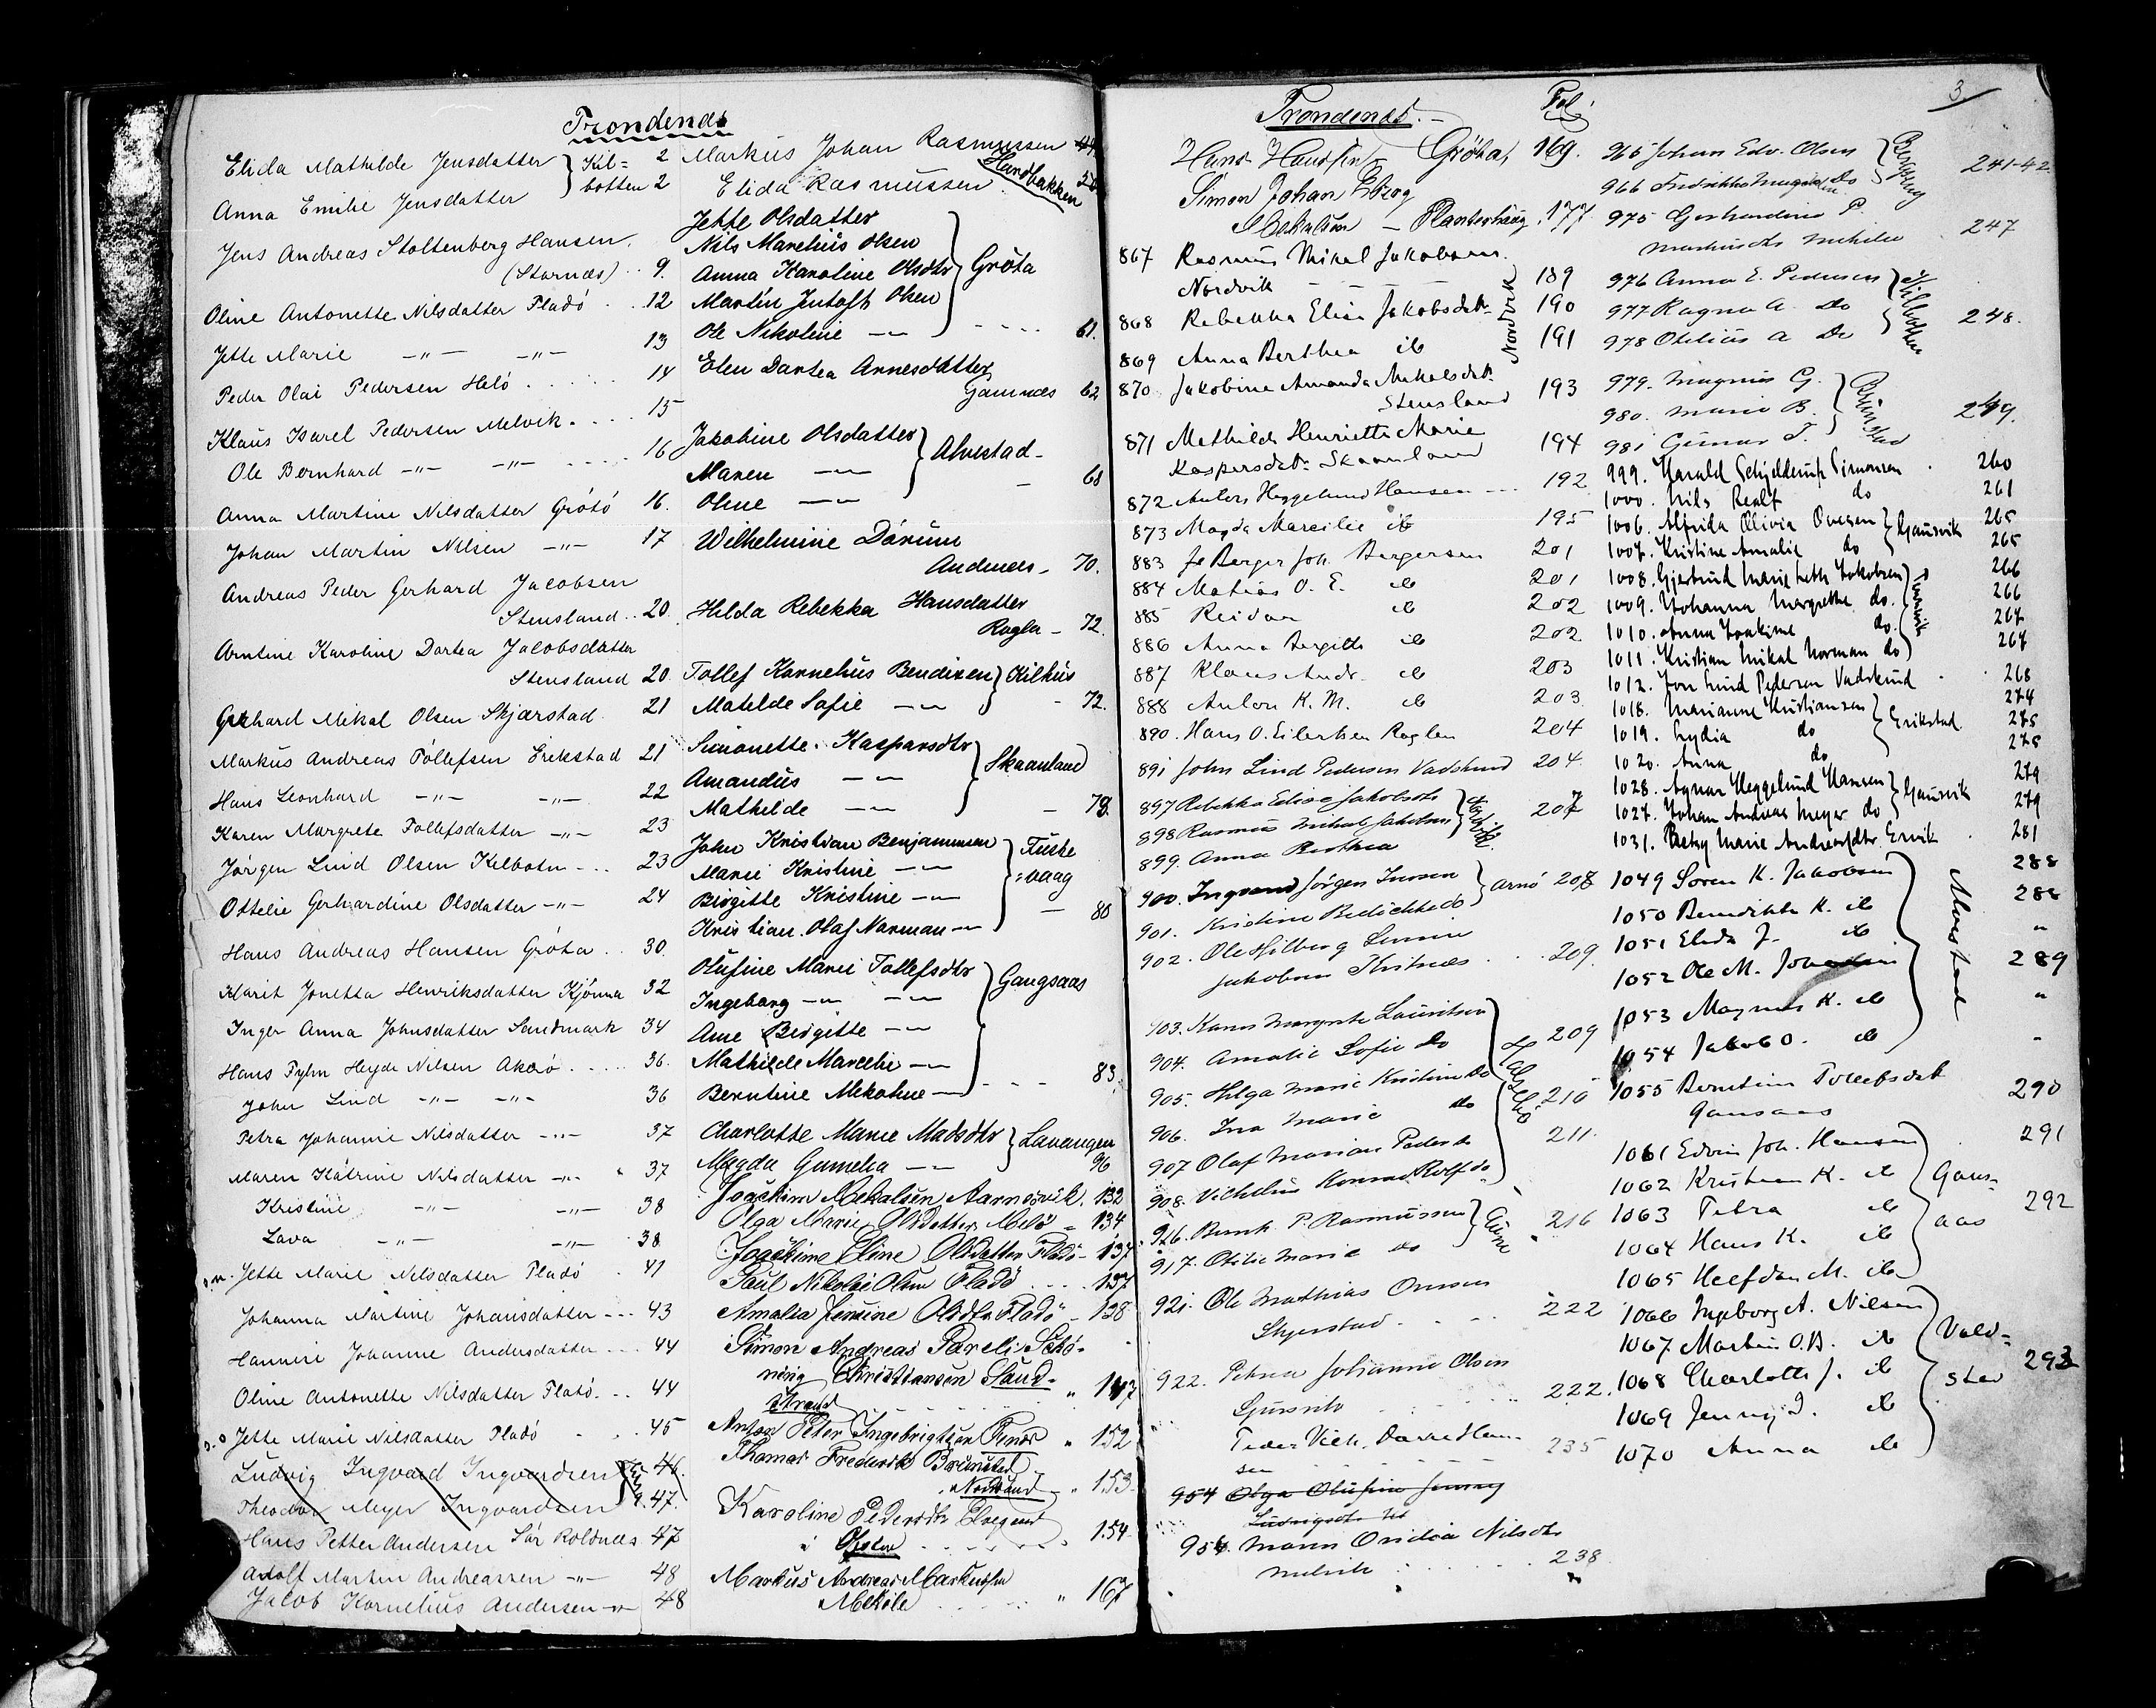 Trondenæs
Elida Mathilde Jensdatter } Kil= 2
Anna Emilie Jensdatter } botten 2
Jens Andreas Stoltenberg Hansen
(Stornæs) . . 9.
Oline Antonette Nilsdatter Fladö . . 12
Jette Marie —"— —"— 13
Peder Olai Pedersen Helö . . . . . 14
Klaus Isarel Pedersen Melvik . . . 15
Ole Bernhard —"— —"— . . . 16
Anna Martine Nilsdatter Grötö 16.
Johan Martin Nilsen —"— 17
Andreas Peder Gerhard Jacobsen
Stensland . . 20
Arntine Karoline Dortea Jacobsdatter
Stensland 20
Gerhard Mikal Olsen Skjærstad 21
Markus Andreas Tollefsen Erikstad 21
Hans Leonhard —"— —"— 22
Karen Margrete Tollefsdatter —"— 23
Jørgen Lind Olsen Kelbotn . . . 23
Ottelie Gerhardine Olsdatter —"— 24
Hans Andreas Hansen Gröta . . 30
Marit Jonetta Henriksdatter Kjönna 32
Inger Anna Johnsdatter Sandmark 34
Hans Fyhn Heyde Nilsen . . . . 36.
John Lind —"— —"— 36
Petra Johanne Nilsdatter —"— 37
Maren Katrine Nilsdatter —"— 37
Kristine —"— —"— 38
Lava —"— —"— 38
Jette Marie Nilsdatter Fladö . 41
Johanna Martine Johansdatter . . . 43
Hannine Johanne Andersdatter . . . 44
Oline Antonette Nilsdatter Fladö . . . 44
Jette Marie Nilsdatter Fladö . . 45
Ludvig Ingvard Ingvardsen 46.
Theodor Meyer Ingvardsen 47.
Hans Petter Andersen Sör Roldnæs 47
Adolf Martin Andreassen —"— 48
Jacob Kornelius Andersen —"— 48
Markus Johan Rasmussen
Elida Rasmussen Sandbakken
Jette Olsdatter
Nils Marelius Olsen
Anna Karoline Olsdtr } Gröta
Martin Jentoft Olsen
Ole Nikoline —"— . . . . 61.
Elen Dortea Arnesdatter
Gamnæs 62
Jakobine Olsdatter
Maren —"— } Alvestad
Oline —"— — 68
Wilhelmine
Andenæs — 70.
Hilda Rebekka Hansdatter
Rogla — 72.
Tollef Kornelius Bendixen } Kilhus
Matilde Sofie —"— - 72.
Simonette Kasparsdtr
Amandus —"— } Skaanland
Mathilde —"— — 78
John Kristian Benjaminsen } Fuske
Marie Kristine —"— =vaag
Birgitte Kristine —"— — 80
Kristian Olaf Norman —"—
Olufine Marie Tollefsdtr } Gangsaas
Ingeborg —"— —"—
Ane Birgitte —"—
Mathilde Marcelie —"—
Berntine Mekoline —"— - - - 83
Charlotte Marie Madsdtr } Lavangen
Magda Gumelia —"— 96
Joackim Mekalsen Aarnesvik. 132
Olga Marie Olsdatter Melö - 134
Joackime Eline Olsdatter Fladö - 137
Paul Nikolai Olsen Fladö . . . 137
Amalia Jensine Olsdtr Fladö - 138
Simon Andreas Pareli Schö-
ning Christiansen Sand-
strand . . . " 147
Anton Peter Ingebrigtsen Finnæs " 152
Thomas Frederik Brunstad
Nordsand " 153.
Karoline Pedersdtr Elvegaard
i . . . . 154.
Markus Andreas Markussen
Mekile . . . " 167
Trondenæs. — Fol: 3
Hans Hansen Gröta, 169.
Simon Johan Eberg
Mekalsen — Planterhaug . 177
867 Rasmus Mikal Jakobsen
Nordvik — — — — 189
868 Rebekka Elise Jakobsdtr. 190
869 Anna Berthea do 191
Nordvik
870. Jakobine Amanda Nikolsdtr.
Stensland 193
871 Mathilde Henriette Marie
Kaspersdtr. Skaanland 194
872 Anders Heggelund Hansen . . . 192
873 Magda Marcilie do 195
883 Joh. Bergersen 201
884 Matias O. E. do 201
885 Reidar do 202
886 Anna Birgitte do 202
887 Klaus Andr. do 203
888 Anton K. M. do 203
890. Hans O. Eilertsen Roglen 204
891 John Lind Pedersen Vadskind 204.
897 Rebekka Elise Jakobsdtr
898 Rasmus Mikal Jakobsen } 207
899. Anna Berthea
900. Ingvard Jörgen Jensen } Arnö 208
901. Kristine Bedichte do
902. Ole Hilberg Simon
Jakobsen . . . 209.
903. Karen Margrete Lauritsen
904. Amalie Sofie do 209
905. Helga Marie Kristine do 210
906. Ina Marie do 211
907 Olaf Marian Peder do
908. Vilhelm Konrad Rolf do
916. Bernh. P. Rasmussen } 216
917. Otilie Marie do
921. Ole Mathias Onsen
Skjerstad . . . . 222
922. Petrea Johanne Olsen
. . . . 222.
Peder Vilh. Hansen
235
954 Olga Olufine Jenny
Ludvigsdtr
954. Maren Ovidia Nilsdtr
Melvik . . . . . 238
965 Johan Edv. Olsen } 241-42.
966 Fredrikke Magdalen do
975 Gerhardine P.
Markusdtr Mekile 247
976 Anna E. Pedersen
977 Ragna A. do } 248.
978 Otelius A do
979. Magnus G. } Brunstad
980. Marie B. 249.
981 Gunnar T.
999. Harald Schjelderup Simonsen . 260
1000. Nils Realf do 261
1006. Alfrida Olivia Ovesen } Gausvik 265
1007. Kristine Amalie do 265
1008. Gjertrud Marie Jakobsen 266
1009. Johanna Margrethe do. 266
1010. Anna Joakime do. 267
1011. Kristian Mikal Norman do 267
1012. Jon Lind Pedersen Vadskind . . 268
1018. Marianne Kristiansen } Erikstad 274
1019. Lydia do 275
1020. Anna do 275
1028. Agnar Heggelund Hansen } Gausvik 279
1027. Johan Andreas Meyer do 279
1031. Betzy Marie Andreasdtr Ervik . 281
1049 Soren K. Jakobsen 288
1050 Benedikte K. do 288
1051 Elida J. do "
1052 Ole M. Johansen 289
1053 Magnus K. do "
1054 Jakob O. do "
Alvestad
1055 Berntine Tollefsdatt
Gausaas 290
1061 Edvin Joh. Hansen . 291
1062 Kristian K. do } Gaus-
1063 Petra do aas 292
1064 Hans K. do
1065 Halfdan M. do
1066 Ingeborg A. Nilsen
1067 Martin O.B. do } Vold-
1068 Charlotte J. do stad 293
1069 Jenny J. do
1070 Anna do